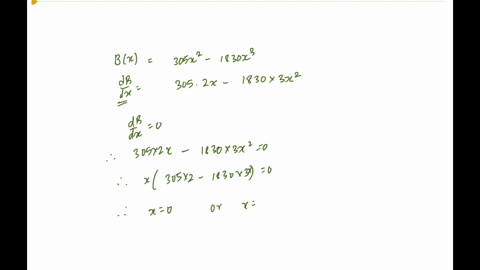 B(x) = 305x² - 1830x³
dB/dx = 305·2x - 1830×3x²
dB/dx = 0
∴ 305×2x - 1830×3x² = 0
∴ x(305×2 - 1830×3x) = 0
∴ x=0 or x=